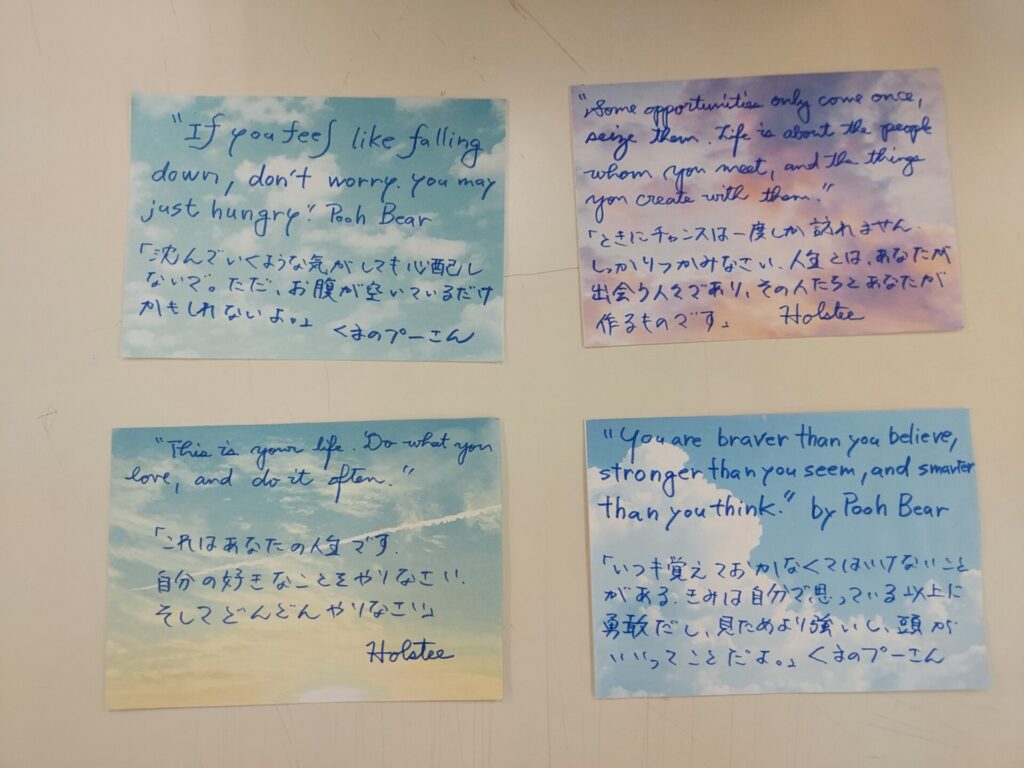 "If you feel like falling
down, don't worry. you may
just hungry." Pooh Bear
「沈んでいくような気がしても心配し
ないで。ただ、お腹が空いているだけ
かもしれないよ。」
くまのプーさん
"Some opportunities only come once,
seize them. Life is about the people
whom you meet, and the things
you create with them."
「ときにチャンスは一度しか訪れません.
しっかりつかみなさい. 人生とは、あなたが
出会う人々であり、その人たちとあなたが
作るものです」 Holstee
"This is your life. Do what you
love, and do it often."
「これはあなたの人生です.
自分の好きなことをやりなさい.
そしてどんどんやりなさい」
Holstee
"You are braver than you believe,
stronger than you seem, and smarter
than you think." by Pooh Bear
「いつも覚えておかなくてはいけないこと
がある. きみは自分で思っている以上に
勇敢だし、見ためより強いし、頭が
いいってことだよ。」くまのプーさん